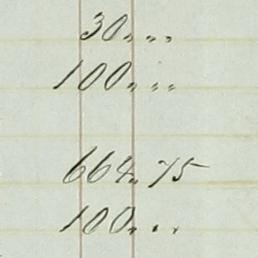 30 " "
100 " "
664. 75
100 " "